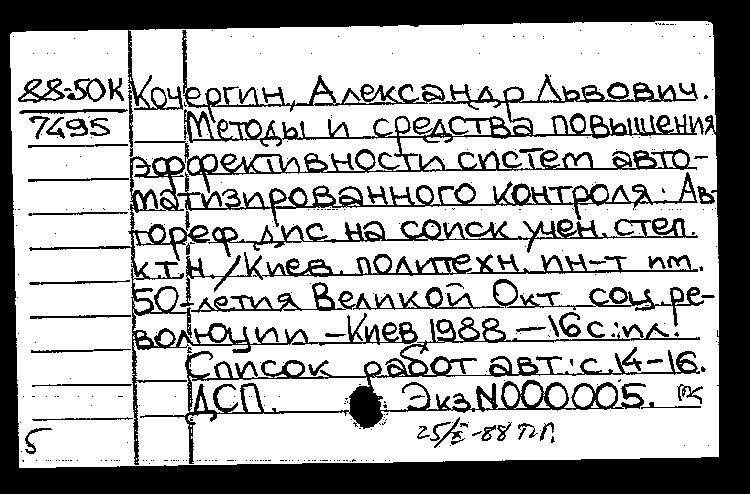 88-50К Кочергин, Александр Львович.
7495 Методы и средства повышения
эффективности систем авто-
матизированного контроля: Ав-
тореф. дис. на соиск. учен. степ.
к.т.н. /Киев. политехн. ин-т им.
50-летия Великой Окт. соц. ре-
волюции. -Киев, 1988. -16 с.: ил.
Список работ авт.: с. 14-16.
ДСП. Экз. N000005.
5